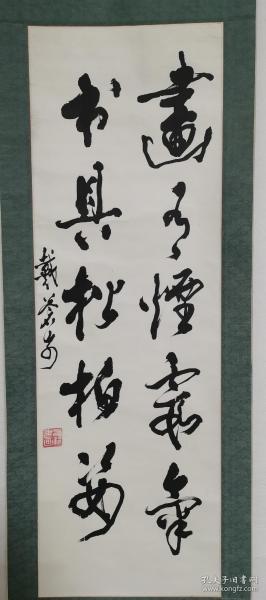 畫有煙霞氣
书具松柏姿
戴
孔夫子旧书网